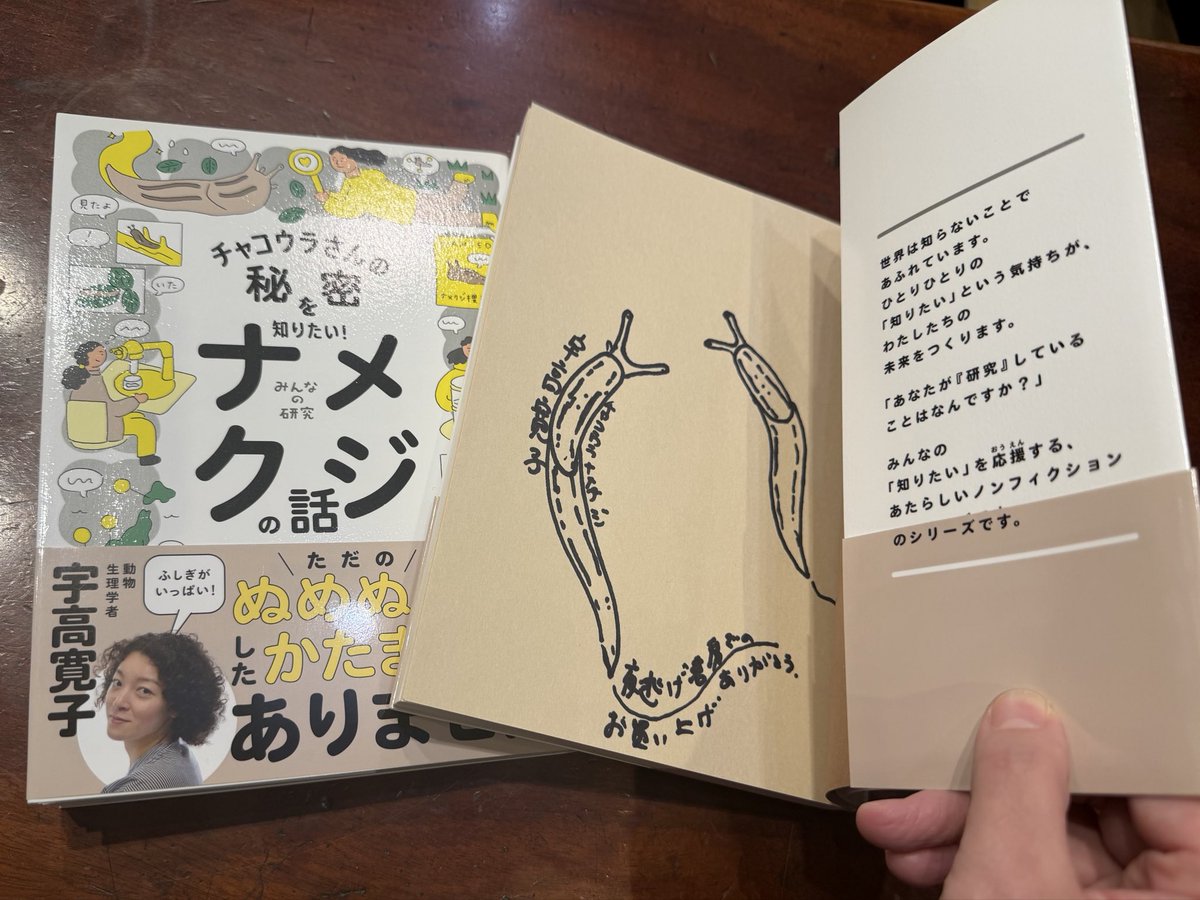 見たよ
！
いた
チャコウラさんの
秘密を
知りたい！
ナメクジの話
みんなの研究
ただの
ぬめぬ
した
かたま
ありませ
ふしぎが
いっぱい！
動物
生理学者
宇高寛子
夜逃げ書房での
お買い上げ
ありがとう。
世界は知らないことで
あふれています。
ひとりひとりの
「知りたい」という気持ちが、
わたしたちの
未来をつくります。
「あなたが『研究』している
ことはなんですか？」
みんなの
「知りたい」を応援する、
おうえん
あたらしいノンフィクション
のシリーズです。